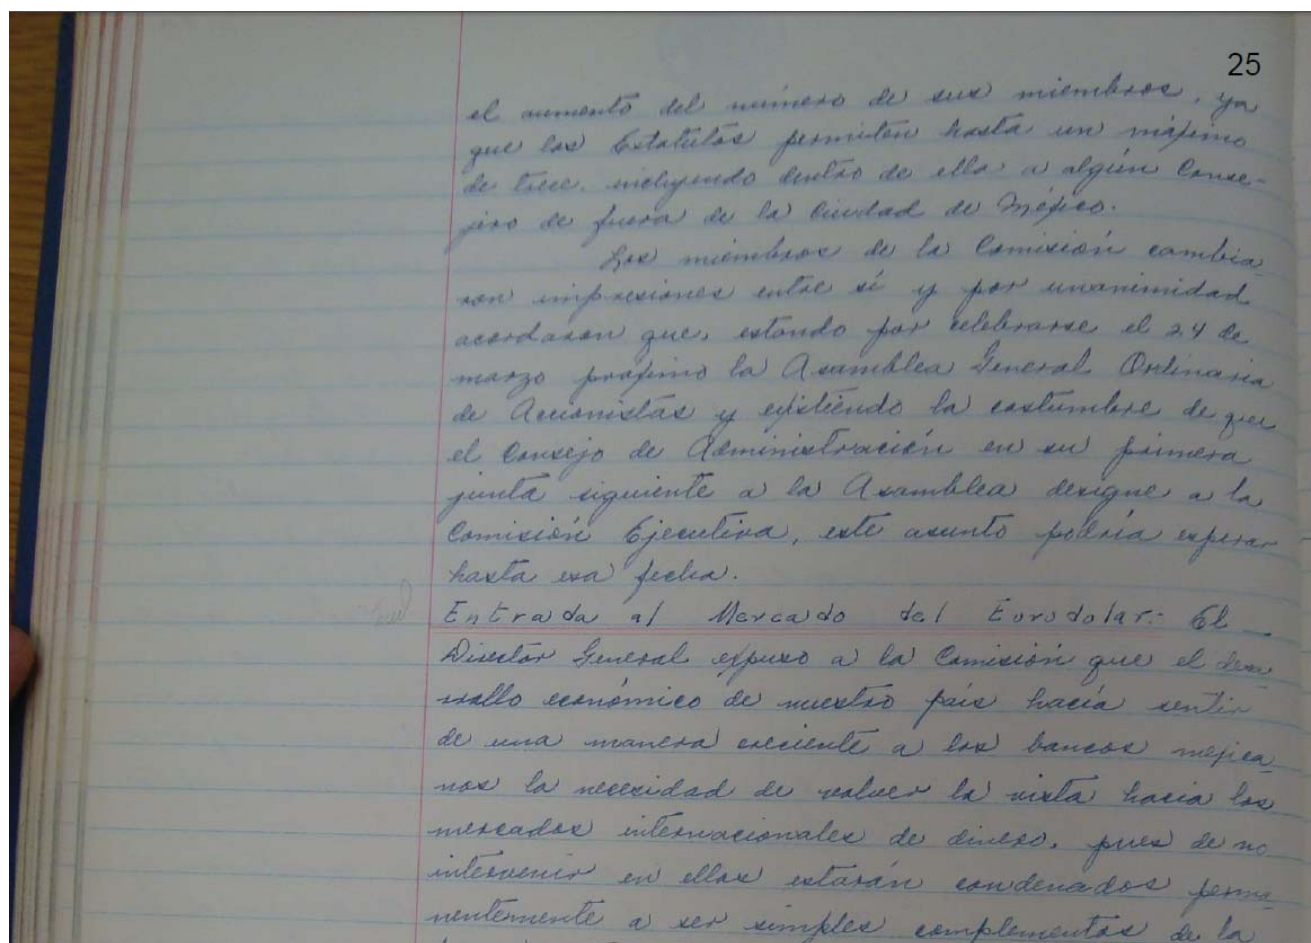 25
el aumento del número de sus miembros, ya
que los Estatutos permiten hasta un máximo
de trece, incluyendo dentro de ella a algún Conse-
jero de fuera de la Ciudad de México.
Los miembros de la Comisión cambia_
ron impresiones entre sí y por unanimidad
acordaron que, estando por celebrarse el 24 de
marzo próximo la Asamblea General Ordinaria
de Accionistas y existiendo la costumbre de que
el Consejo de Administración en su primera
junta siguiente a la Asamblea designe a la
Comisión Ejecutiva, este asunto podría esperar
hasta esa fecha.
Entrada al Mercado del Eurodolar:- El
Director General expuso a la Comisión que el desa_
rrollo económico de nuestro país hacía sentir
de una manera creciente a los bancos mexica_
nos la necesidad de volver la vista hacia los
mercados internacionales de dinero, pues de no
intervenir en ellos estarán condenados perma_
nentemente a ser simples complementos de la